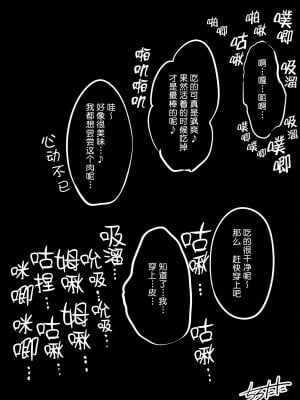 噗唧
啪唧
吸溜
噗唧
啪唧
咕啾
啪唧
啊…嘎…呱啊…
吃的可真是飒爽♪
果然活着的时候吃掉
才是最棒的呢♪
啪叽啪叽
哇~
好像很美味…♪
我都想尝尝这个肉呢…
心动不已
吃的很干净呢~
那么 赶快穿上吧
咕啾…
知道了…我…
穿上…皮…
吸溜…
咕啾…
吮吸…
姆啾…
咕捏…
咪唧…
吮吸…
姆啾…
咕啾…
咪唧…